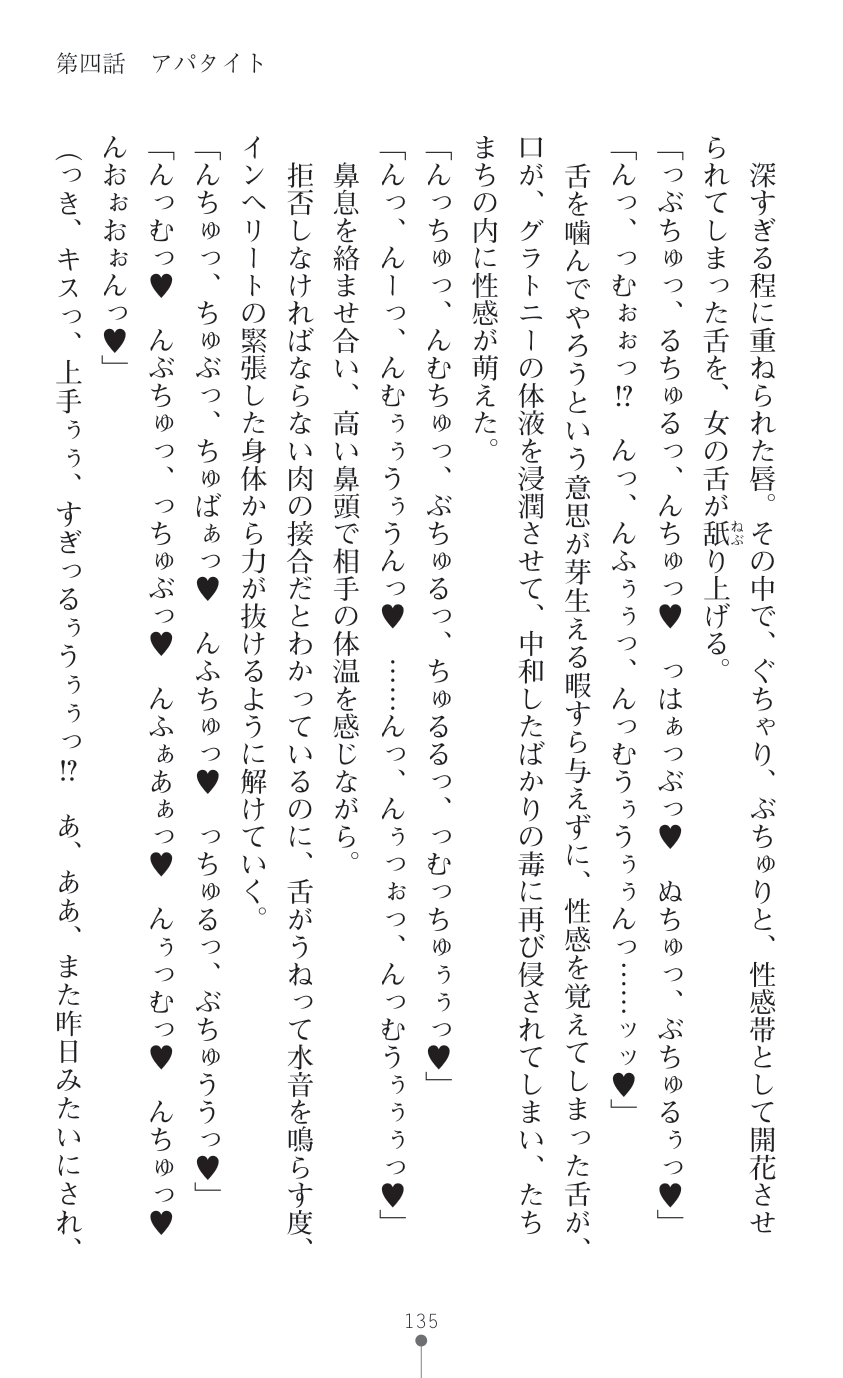 第四話　アパタイト
　深すぎる程に重ねられた唇。その中で、ぐちゃり、ぶちゅりと、性感帯として開花させ
られてしまった舌を、女の舌が舐り上げる。
ねぶ
「っぶちゅっ、るちゅるっ、んちゅっ♥　っはぁっぶっ♥　ぬちゅっ、ぶちゅるぅっ♥」
「んっ、っむぉぉっ!?　んっ、んふぅぅっ、んっむうぅうぅぅんっ……ッッ♥」
　舌を噛んでやろうという意思が芽生える暇すら与えずに、性感を覚えてしまった舌が、
口が、グラトニーの体液を浸潤させて、中和したばかりの毒に再び侵されてしまい、たち
まちの内に性感が萌えた。
「んっちゅっ、んむちゅっ、ぶちゅるっ、ちゅるるっ、っむっちゅぅぅっ♥」
「んっ、んーっ、んむぅぅうぅうんっ♥　……んっ、んぅっぉっ、んっむうぅぅぅっ♥」
　鼻息を絡ませ合い、高い鼻頭で相手の体温を感じながら。
　拒否しなければならない肉の接合だとわかっているのに、舌がうねって水音を鳴らす度、
インヘリートの緊張した身体から力が抜けるように解けていく。
「んちゅっ、ちゅぶっ、ちゅばぁっ♥　んふちゅっ♥　っちゅるっ、ぶちゅううっ♥」
「んっむっ♥　んぶちゅっ、っちゅぶっ♥　んふぁあぁっ♥　んぅっむっ♥　んちゅっ♥
んおぉおぉんっ♥」
（っき、キスっ、上手ぅぅ、すぎっるぅうぅぅっ!?　あ、ああ、また昨日みたいにされ、
135